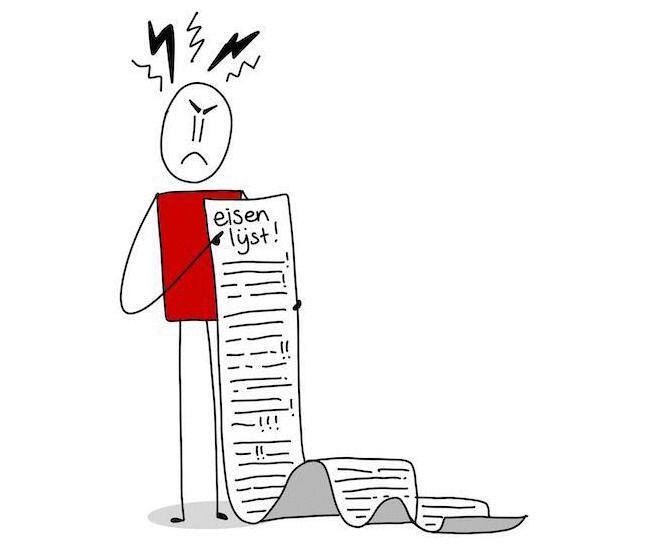 eisen
lijst!